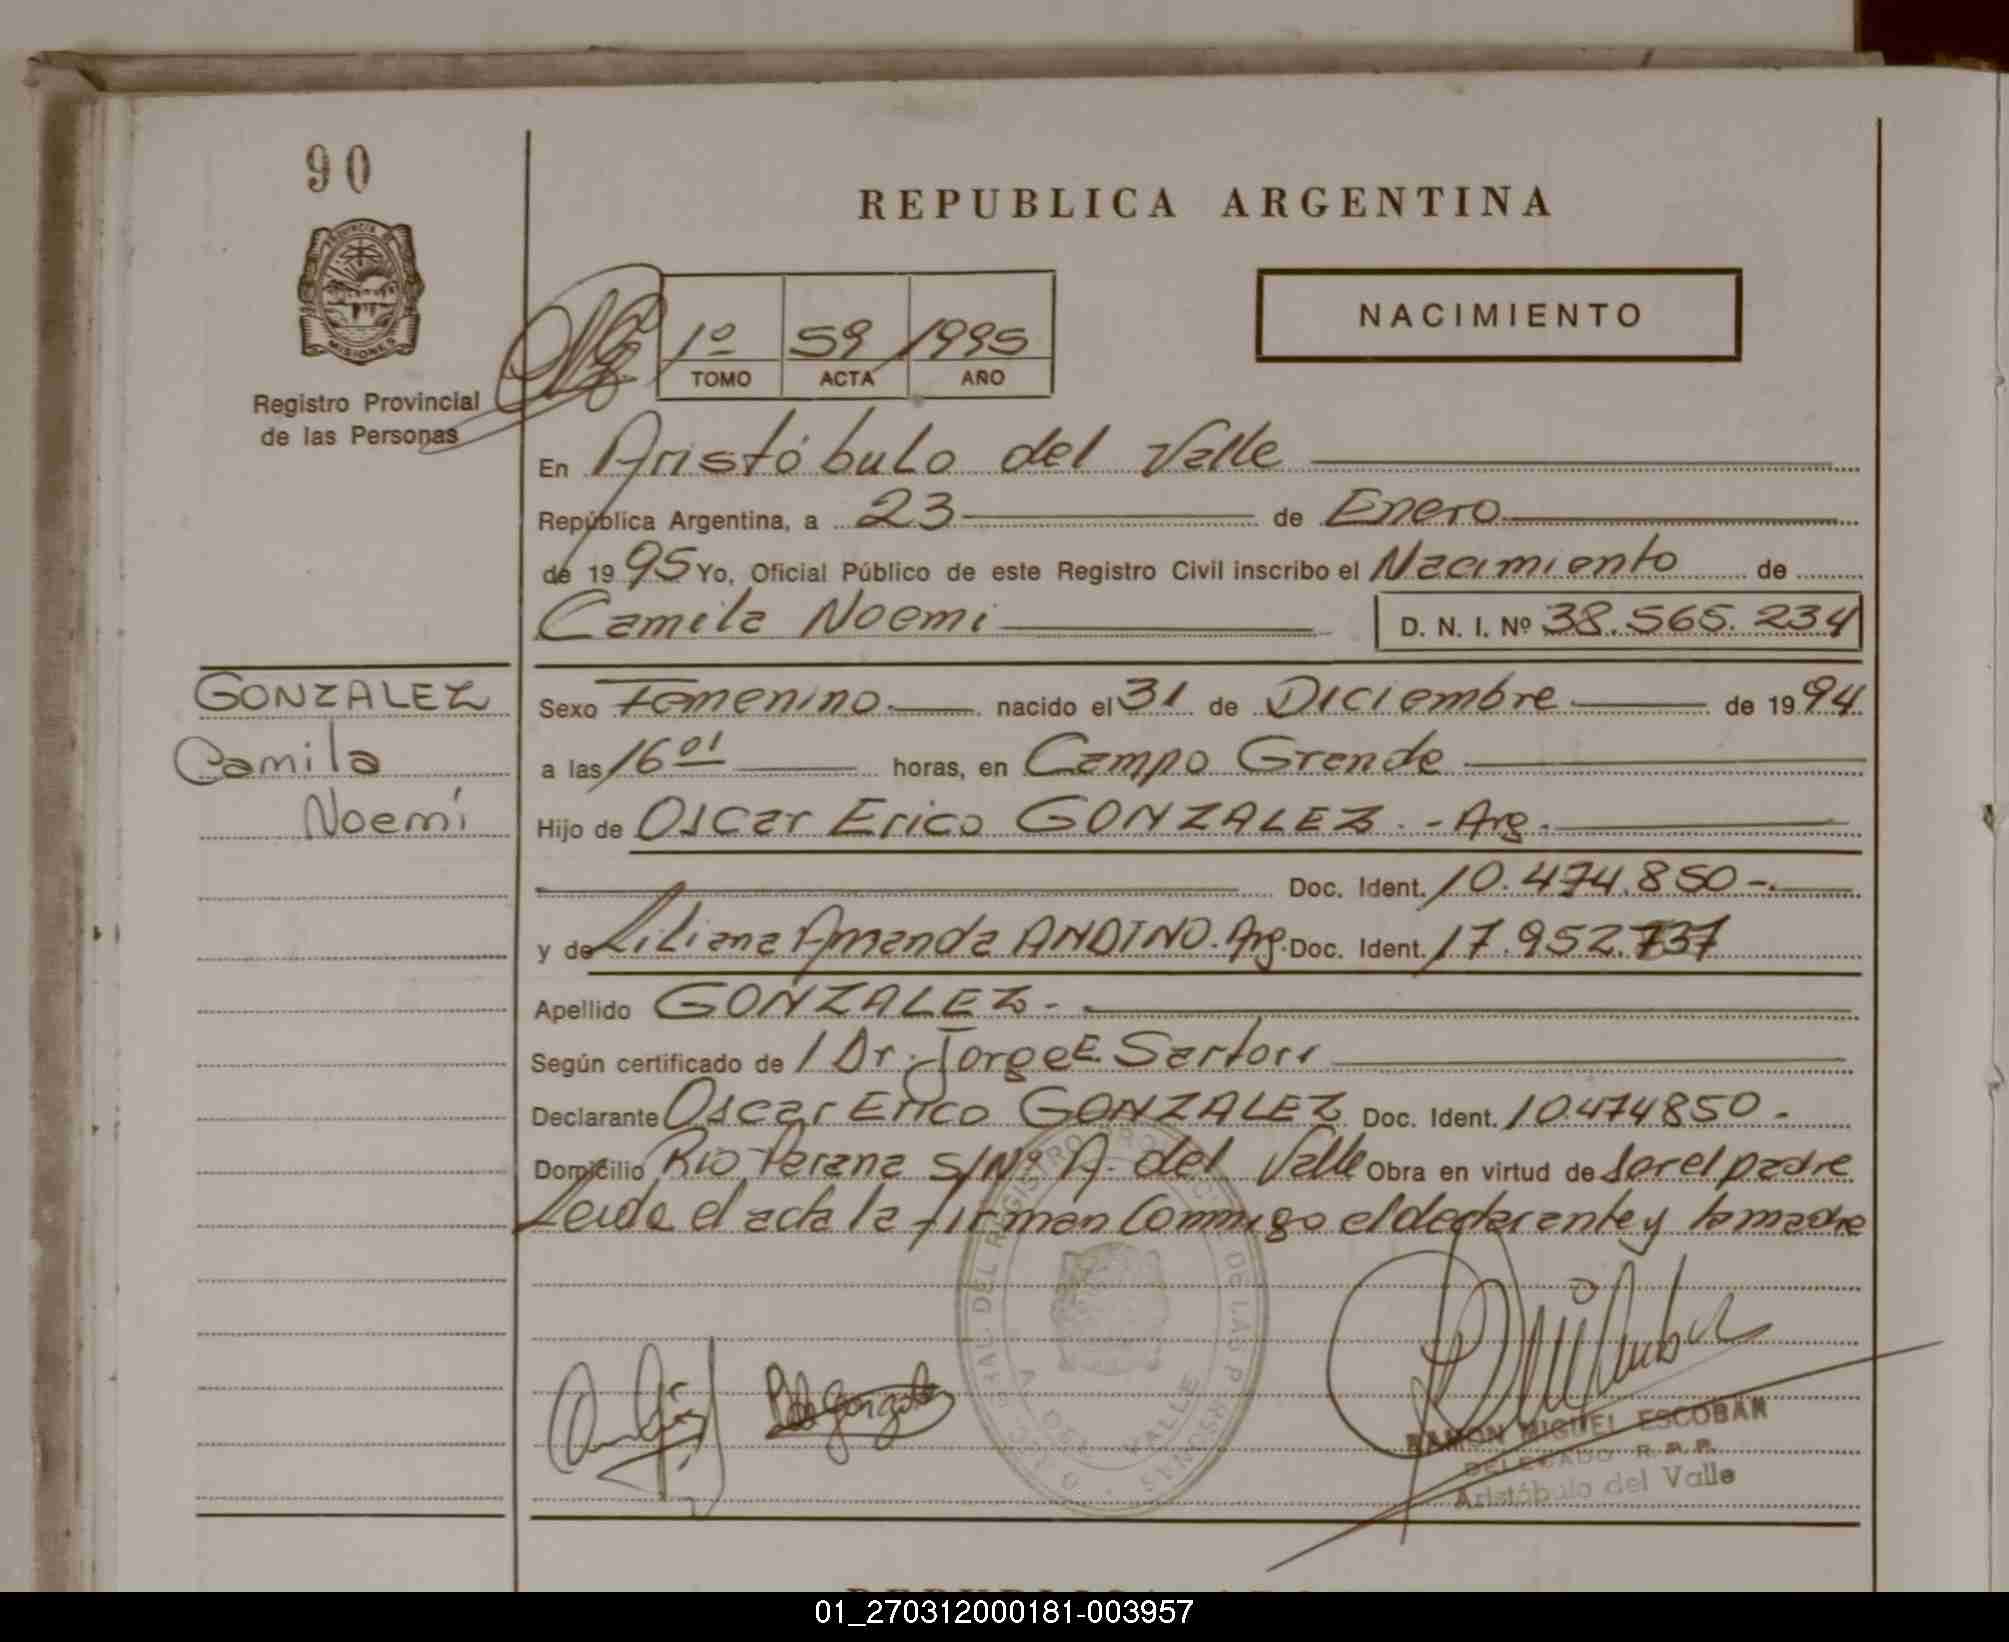 90
REPUBLICA ARGENTINA
PROVINCIA DE
MISIONES
NACIMIENTO
1º 59 1995
TOMO ACTA AÑO
Registro Provincial
de las Personas
En Aristóbulo del Valle
República Argentina, a 23 de Enero
de 1995 Yo, Oficial Público de este Registro Civil inscribo el Nacimiento de
Camila Noemi D. N. I. Nº 38.565.234
GONZALEZ
Camila
Noemí
Sexo Femenino nacido el 31 de Diciembre de 1994
a las 16 01 horas, en Campo Grande
Hijo de Oscar Erico GONZALEZ.- Arg.
Doc. Ident. 10.474.850-.
y de Liliana Amanda ANDINO. Arg. Doc. Ident. 17.952.737
Apellido GONZALEZ-.
Según certificado de / Dr. Jorge E. Sartori
Declarante Oscar Erico GONZALEZ Doc. Ident. 10.474850-
Domicilio Rio Parana S/Nº A. del Valle Obra en virtud de ser el padre
Leida el acta la firman Conmigo el declarante y la madre
REGISTRO DE LAS PERSONAS
DEL VALLE
RAMON MIGUEL ESCOBAR
DELEGADO R. P. P.
Aristóbulo del Valle
01_270312000181-003957